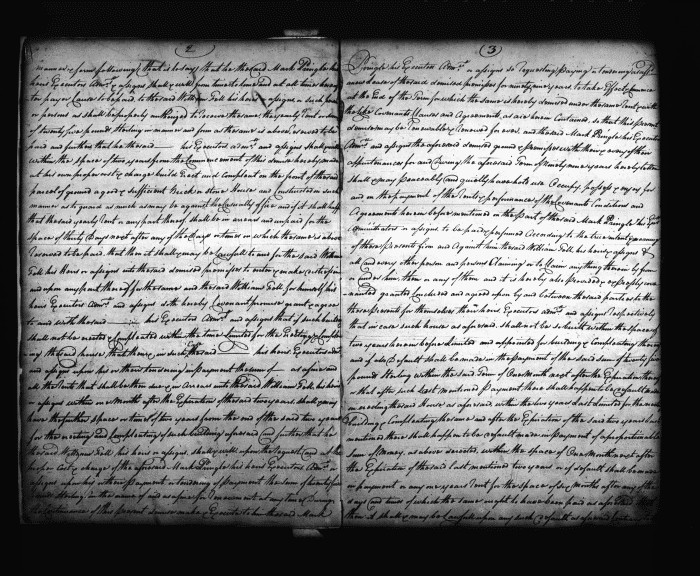 2
manner & form following that is to say that he the said Mark Pringle his
heirs Executors Admrs & assigns shall & will from time to time and at all times
pay or Cause to be paid to the said William Fell his heirs or assigns or such
or persons as shall be properly authorized to receive the same the yearly Rent or sum
of twenty five pounds Sterling in manner and form as the same is above reserved to be
paid and further that he the said his Executors Admrs and assigns shall & will
within the space of two years from the Commencement of this demise
at his own proper cost & charge build Erect and Compleat on the front of the said
parcel of ground a good & sufficient Brick or Stone House and Constructed in such
manner as to guard as much as may be against the Casualty of fire and if it shall happen
that the said yearly Rent or any part thereof shall be in arrears and unpaid for the
space of thirty Days next after any of the Days or times in which the same is above
reserved to be paid that then it shall & may be Lawfull to and for the said William
Fell his Heirs or assigns into the said demised premises to enter & make distress
and upon any part thereof
heirs Executors Admrs and assigns doth hereby Covenant promise grant & agree
to and with the said his heirs Executors Admrs and assigns that if such building
shall not be erected & compleated within the time limited for the Erecting & Compleat-
ing the said house that then & in such case the said his heirs Executors Admrs
and assigns upon his or them tendering in payment the sum of as aforesaid
all the Rent that shall be then due or in arrears unto the said William Fell his heirs
or assigns within one Month after the Expiration of the said two years shall & may
have the further space or time of two years from the end of the said two years
for the erecting and Compleating of such building aforesaid And further that he
the said William Fell his heirs or assigns shall & will upon the request and at the
proper Cost & charge of the aforesaid Mark Pringle his heirs Executors Admrs or
assigns upon his or their payment or tendering of payment the sum of twenty five
pounds Sterling in the name of and as a fine for renewment at any time During
the Continuance of this present demise make & Execute to him the said Mark
(3)
Pringle his Executors Admrs or assigns so requesting paying or tendering a
new lease of the said demised premises for ninety nine years to take Effect Commence
at the End of the Term for which the same is hereby demised under the same Rent and with
the like Covenants Clauses and Agreements as are herein Contained, so that this present
demise may be renewable & renewed for ever and the said Mark Pringle his Executors
Admrs and assigns the aforesaid demised ground & premises with their & every of their
appurtenances for and during the aforesaid Term of ninety nine years hereby letten
shall & may peaceably and quietly have hold use Occupy possess & enjoy for
and on the payment of the Rents & performance of the Covenants Conditions and
Agreements herein before mentioned on the part of the said Mark Pringle his Exrs
Administrators or assigns to be paid & performed According to the true intent & meaning
of these presents from and Against him the said William Fell his heirs & assigns &
all and every other person and persons Claiming or to Claim any thing therein by from
or under him them or any of them and it is hereby also provided & expressly cove-
nanted granted Concluded and agreed upon by and between the said parties to these
presents for themselves their heirs Executors Admrs and assigns Respectively
that in case such house as aforesaid shall not be so built within the space of
two years herein before limited and appointed for building & Compleating thereof
and if also Default shall be made in the payment of the said sum of twenty five
pounds Sterling within the said Term of One Month next after the Expiration thereof
or that after such last mentioned payment there shall happen to be default made
in erecting the said House as aforesaid within the two years last limited for the new
building & Compleating the same and after the Expiration of the said two years last
mentioned there shall happen to be default made in payment of a proportionable
sum of Money as above recited within the space of One Month next after
the Expiration of the said last mentioned two years or if default shall be made
in payment of any one years Rent for the space of Six Months after any of the
days and times of which the same ought to have been paid as aforesaid that
then it shall & may be Lawfull upon any such default as aforesaid